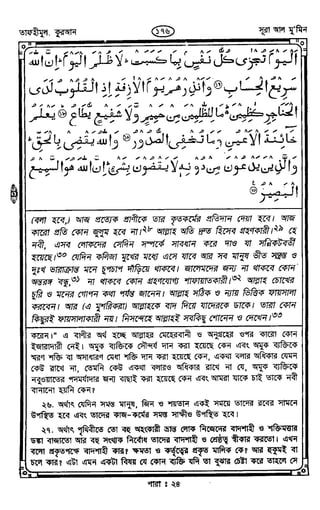 তাফহীমুল কুরআন ১৭৬ সূরা আল মু'মিন
اَلْيَوْمَ تُجْزٰى كُلُّ نَفْسٍۭ بِمَا كَسَبَتْ ؕ لَا ظُلْمَ الْيَوْمَ ؕ اِنَّ اللّٰهَ
سَرِيْعُ الْحِسَابِ ۝ وَاَنْذِرْهُمْ يَوْمَ الْاٰزِفَةِ اِذِ الْقُلُوْبُ لَدَى
الْحَنَاجِرِ كٰظِمِيْنَ ؕ مَا لِلظّٰلِمِيْنَ مِنْ حَمِيْمٍ وَّلَا شَفِيْعٍ يُّطَاعُ ؕ يَعْلَمُ
خَآئِنَةَ الْاَعْيُنِ وَمَا تُخْفِى الصُّدُوْرُ ۝ وَاللّٰهُ يَقْضِىْ بِالْحَقِّ ؕ
وَالَّذِيْنَ يَدْعُوْنَ مِنْ دُوْنِهٖ لَا يَقْضُوْنَ بِشَىْءٍ ؕ اِنَّ اللّٰهَ هُوَ السَّمِيْعُ
الْبَصِيْرُ ۝
(বলা হবে,) আজ প্রত্যেক প্রাণীকে তার কৃতকর্মের প্রতিদান দেয়া হবে। আজ
কারো প্রতি কোন জুলুম হবে না।২৮ আল্লাহ অতি দ্রুত হিসেব গ্রহণকারী।২৯ হে
নবী, এসব লোকদের সেদিন সম্পর্কে সাবধান করে দাও যা সন্নিকটবর্তী
হয়েছে।৩০ যেদিন কলিজা মুখের মধ্যে এসে যাবে আর সব মানুষ ভীত সন্ত্রস্ত ও
দুঃখ ভারাক্রান্ত মনে চুপচাপ দাঁড়িয়ে থাকবে। জালেমদের জন্য না থাকবে কোন
অন্তরঙ্গ বন্ধু,৩১ না থাকবে কোন গ্রহণযোগ্য শাফায়াতকারী।৩২ আল্লাহ চোখের
চুরি ও মনের গোপন কথা পর্যন্ত জানেন। আল্লাহ সঠিক ও ন্যায় ভিত্তিক ফায়সালা
করবেন। আর (এ মুশরিকরা) আল্লাহকে বাদ দিয়ে যাদেরকে ডাকে। তারা কোন
কিছুরই ফায়সালাকারী নয়। নিঃসন্দেহে আল্লাহই সবকিছু শোনেন ও দেখেন।৩৩
করেন।" এ বাণীর অর্থ হচ্ছে আল্লাহর মেহেরবানী ও অনুগ্রহের ওপর কারো কোন
ইজারাদারী নেই। অমুক ব্যক্তিকে সৌন্দর্য দান করা হয়েছে কেন এবং অমুক ব্যক্তিকে
স্মরণ শক্তি বা অসাধারণ মেধা শক্তি দান করা হয়েছে কেন, একথা বলার অধিকার যেমন
কেউ রাখে না, তেমনি কেউ একথা বলারও অধিকার রাখে না যে, অমুক ব্যক্তিকে
নবুওয়াতের পদমর্যাদার জন্য বাছাই করা হয়েছে কেন এবং আমরা যাকে চাই তাকে নবী
বানানো হয়নি কেন?
২৬. অর্থাৎ যেদিন সমস্ত মানুষ, জিন ও শয়তান একই সময়ে তাদের রবের সামনে
উপস্থিত হবে এবং তাদের কাজ-কর্মের সমস্ত সাক্ষীও উপস্থিত হবে।
২৭. অর্থাৎ পৃথিবীতে তো বহু অহংকারী ভ্রান্ত লোক নিজেদের বাদশাহী ও শক্তিমত্তার
ডঙ্কা বাজাতো আর বহু সংখ্যক নির্বোধ তাদের বাদশাহী ও শ্রেষ্ঠত্ব স্বীকার করতো। এখন
বলো প্রকৃতপক্ষে বাদশাহী কার? ক্ষমতা ও কর্তৃত্বের প্রকৃত মালিক কে? আর হুকুমই বা
চলে কার? এটা এমন একটা বিষয় যে কোন ব্যক্তি যদি তা বুঝার চেষ্টা করে তাহলে সে
পারা : ২৪